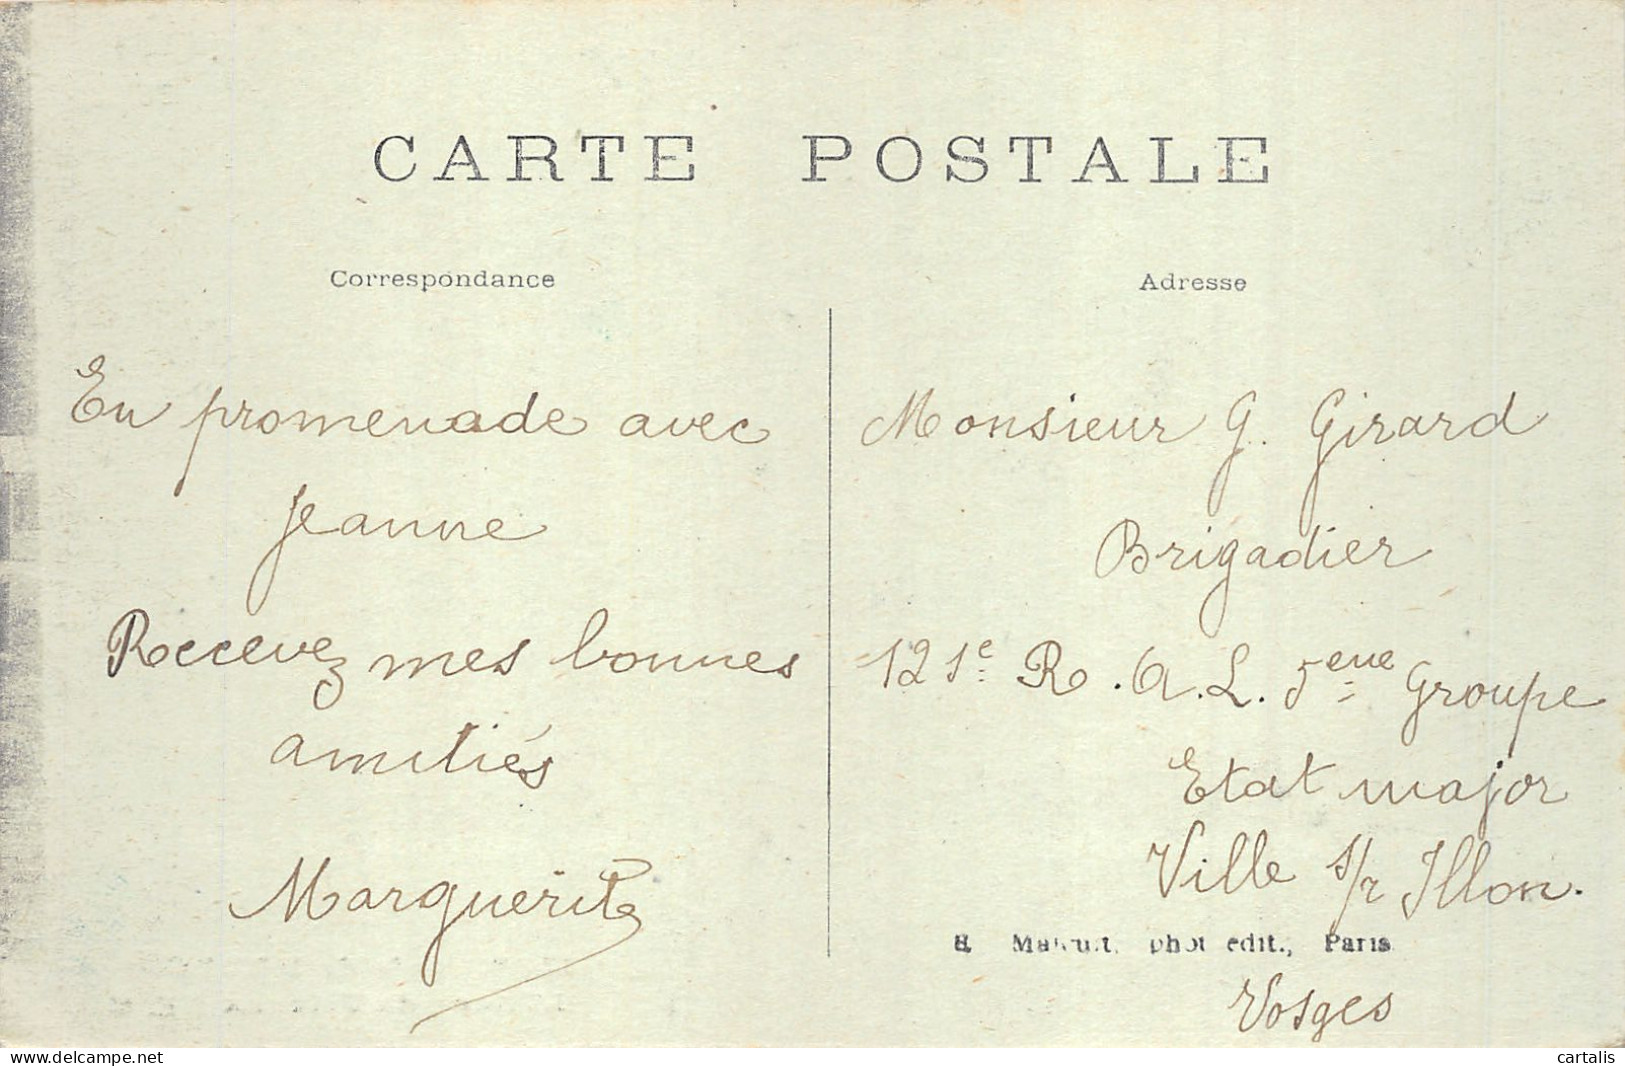 CARTE POSTALE
Correspondance
En promenade avec
Jeanne
Recevez mes bonnes
amitiés
Marguerite
Adresse
Monsieur G. Girard
Brigadier
121e R.A.L. 5eme Groupe
Etat major
Ville s/r Illon.
phot edit., Paris
Vosges
www.delcampe.net
cartalis